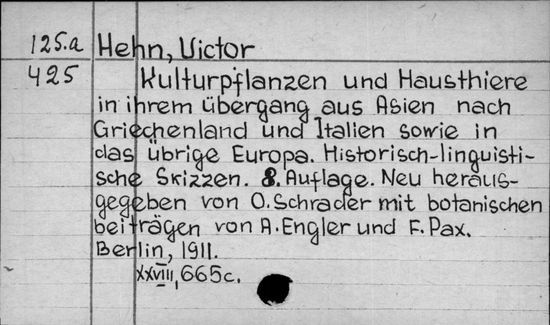 125.a Hehn, Victor
425 Kulturpflanzen und Hausthiere
in ihrem übergang aus Asien nach
Griechenland und Italien sowie in
das übrige Europa. Historisch-linguisti-
sche Skizzen. 8. Auflage. Neu heraus-
gegeben von O. Schrader mit botanischen
beiträgen von A. Engler und F. Pax.
Berlin, 1911.
XXVIII, 665c.